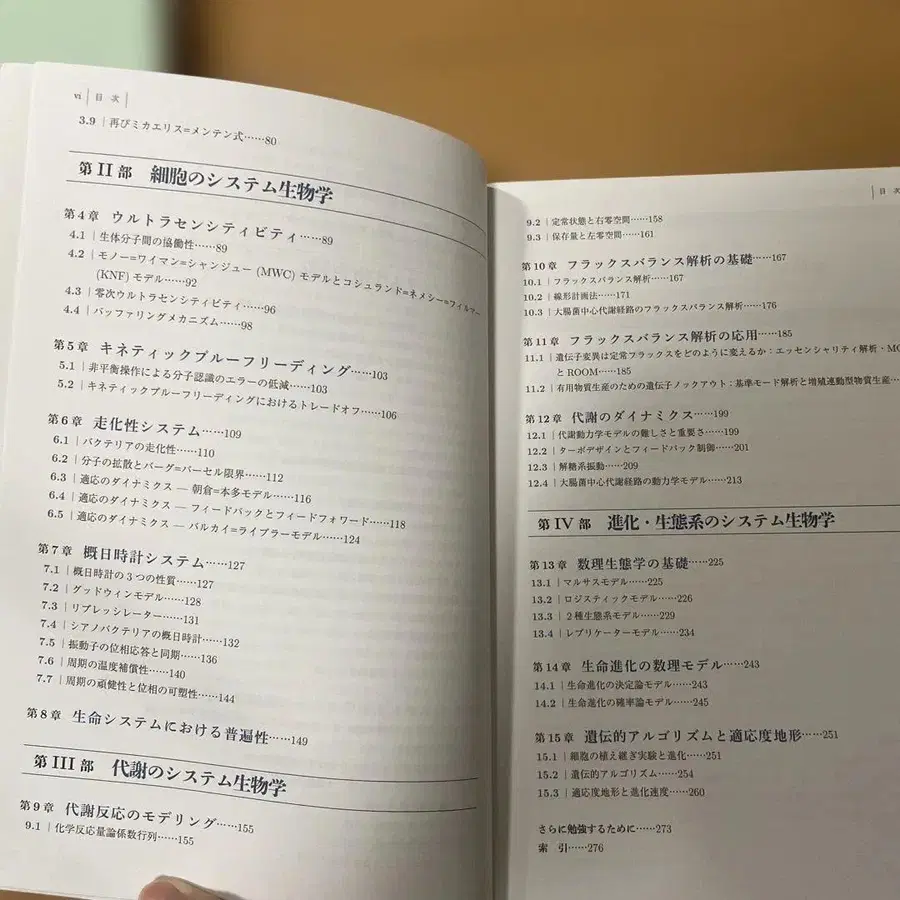 vi | 目 次 |
3.9 | 再びミカエリス=メンテン式……80
第 II 部 細胞のシステム生物学
第4章 ウルトラセンシティビティ……89
4.1 | 生体分子間の協働性……89
4.2 | モノー=ワイマン=シャンジュー (MWC) モデルとコシュランド=ネメシー=フィルマー
(KNF) モデル……92
4.3 | 零次ウルトラセンシティビティ……96
4.4 | バッファリングメカニズム……98
第5章 キネティックプルーフリーディング……103
5.1 | 非平衡操作による分子認識のエラーの低減……103
5.2 | キネティックプルーフリーディングにおけるトレードオフ……106
第6章 走化性システム……109
6.1 | バクテリアの走化性……110
6.2 | 分子の拡散とバーグ=パーセル限界……112
6.3 | 適応のダイナミクス — 朝倉=本多モデル……116
6.4 | 適応のダイナミクス — フィードバックとフィードフォワード……118
6.5 | 適応のダイナミクス — バルカイ=ライブラーモデル……124
第7章 概日時計システム……127
7.1 | 概日時計の3つの性質……127
7.2 | グッドウィンモデル……128
7.3 | リプレッシレーター……131
7.4 | シアノバクテリアの概日時計……132
7.5 | 振動子の位相応答と同期……136
7.6 | 周期の温度補償性……140
7.7 | 周期の頑健性と位相の可塑性……144
第8章 生命システムにおける普遍性……149
第 III 部 代謝のシステム生物学
第9章 代謝反応のモデリング……155
9.1 | 化学反応量論係数行列……155
| 目 次
9.2 | 定常状態と右零空間……158
9.3 | 保存量と左零空間……161
第10章 フラックスバランス解析の基礎……167
10.1 | フラックスバランス解析……167
10.2 | 線形計画法……171
10.3 | 大腸菌中心代謝経路のフラックスバランス解析……176
第11章 フラックスバランス解析の応用……185
11.1 | 遺伝子変異は定常フラックスをどのように変えるか：エッセンシャリティ解析・MO
と ROOM……185
11.2 | 有用物質生産のための遺伝子ノックアウト：基準モード解析と増殖連動型物質生産…
第12章 代謝のダイナミクス……199
12.1 | 代謝動力学モデルの難しさと重要さ……199
12.2 | ターボデザインとフィードバック制御……201
12.3 | 解糖系振動……209
12.4 | 大腸菌中心代謝経路の動力学モデル……213
第 IV 部 進化・生態系のシステム生物学
第13章 数理生態学の基礎……225
13.1 | マルサスモデル……225
13.2 | ロジスティックモデル……226
13.3 | 2種生態系モデル……229
13.4 | レプリケーターモデル……234
第14章 生命進化の数理モデル……243
14.1 | 生命進化の決定論モデル……243
14.2 | 生命進化の確率論モデル……245
第15章 遺伝的アルゴリズムと適応度地形……251
15.1 | 細胞の植え継ぎ実験と進化……251
15.2 | 遺伝的アルゴリズム……254
15.3 | 適応度地形と進化速度……260
さらに勉強するために……273
索 引……276